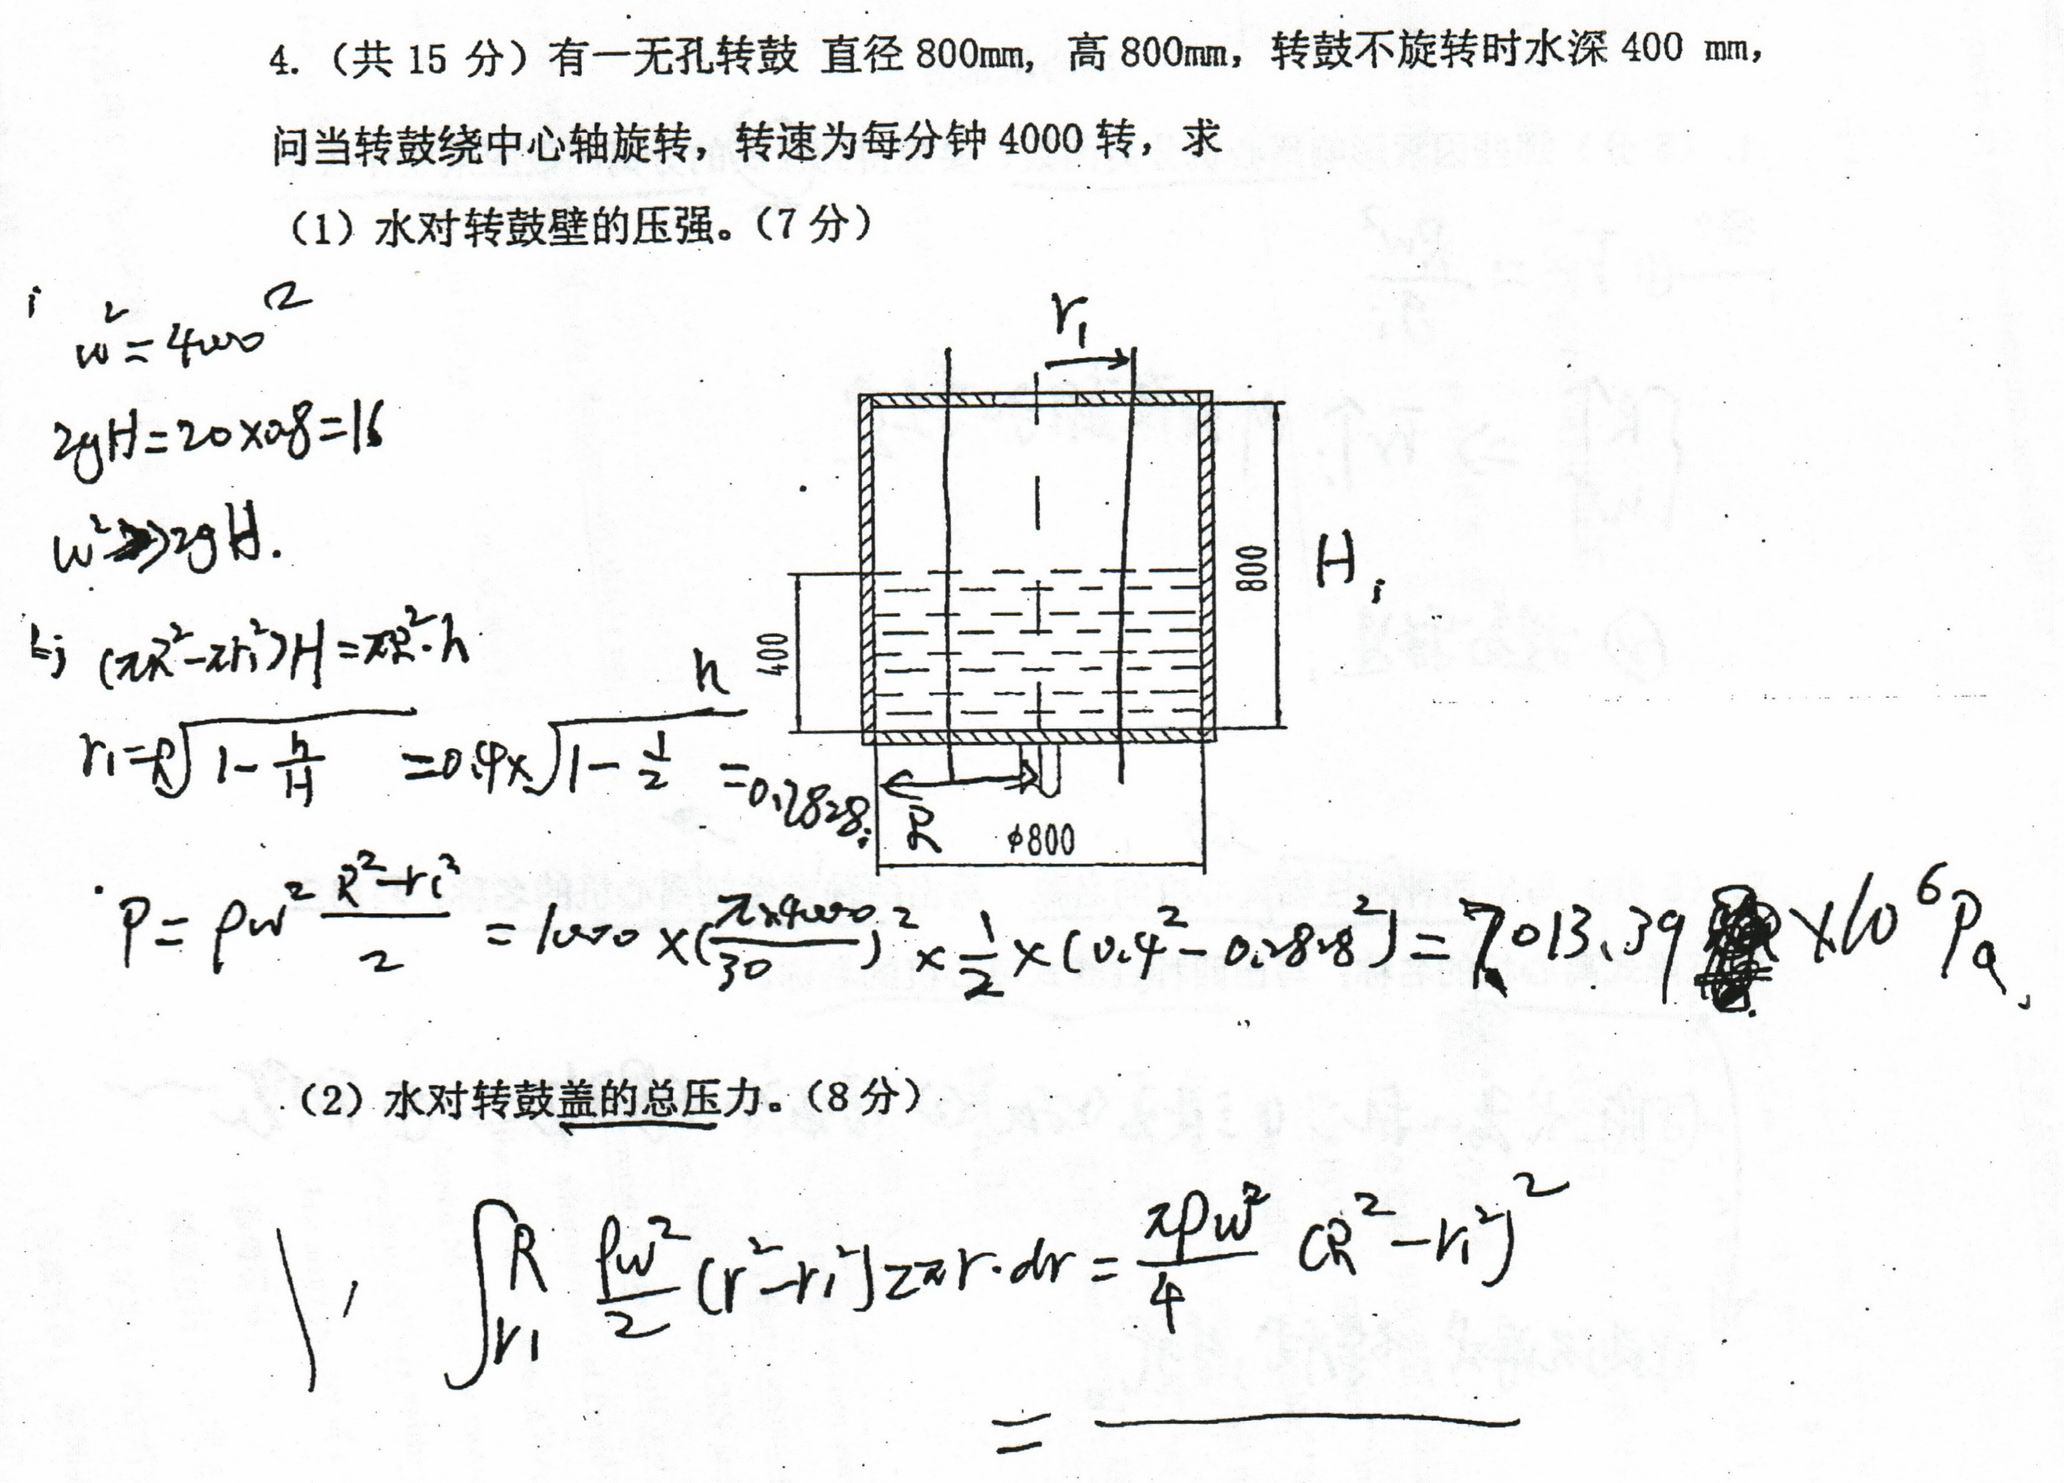 4.（共 15 分）有一无孔转鼓 直径 800mm, 高 800mm，转鼓不旋转时水深 400 mm，
问当转鼓绕中心轴旋转，转速为每分钟 4000 转，求
（1）水对转鼓壁的压强。（7 分）
w² = 4000²
2gH = 20×0.8 = 16
w² >> 2gH.
(πR² - πr₁²)H = πR²·h
r₁ = R√(1 - h/H) = 0.4×√(1 - 1/2) = 0.2828
r₁
H
800
400
h
R
φ800
P = ρw² (R² - r₁²)/2 = 1000 × (π×4000/30)² × 1/2 × (0.4² - 0.2828²) = 7.013.39 ×10⁶ Pa
（2）水对转鼓盖的总压力。（8 分）
∫_{r₁}^{R} ρw²/2 (r² - r₁²) 2πr·dr = πρw²/4 (R² - r₁²)²
=